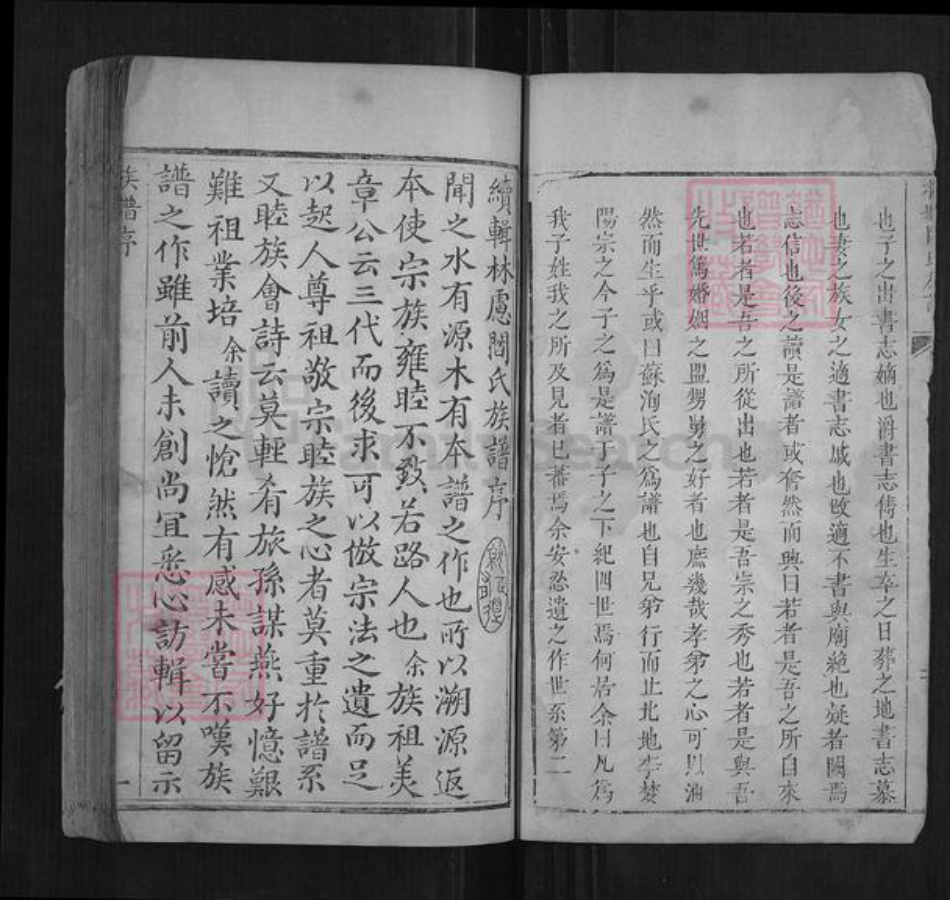 也子之出書志嫡也爵書志儁也生卒之日葬之地書志慕
也妻之族女之適書志戚也改適不書與廟絶也疑者闕焉
志信也後之讀是譜者或奮然而興曰若者是吾之所自來
也若者是吾之所從出也若者是吾宗之秀也若者是與吾
先世篤婚姻之盟甥舅之好者也庶幾哉孝弟之心可以油
然而生乎或曰蘇洵氏之爲譜也自兄弟行而止北地李夢
陽宗之今子之爲是譜于子之下紀四世焉何居余曰凡爲
我子姓我之所及見者已蕃焉余安忍遺之作世系第二
續輯林慮閻氏族譜序
聞之水有源木有本譜之作也所以溯源返
本使宗族雍睦不致若路人也余族祖美
章公云三代而後求可以倣宗法之遺而足
以起人尊祖敬宗睦族之心者莫重於譜系
又睦族會詩云莫輕肴旅孫謀燕好憶艱
難祖業培余讀之愴然有感未嘗不嘆族
譜之作雖前人未創尚宜悉心訪輯以留示
族譜序
一
FamilySearch